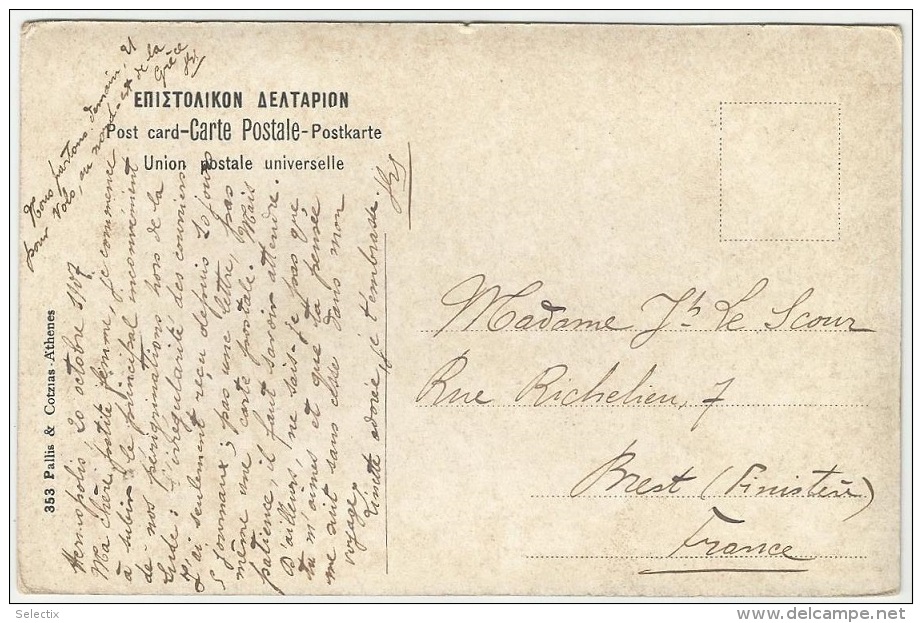 ΕΠΙΣΤΟΛΙΚΟΝ ΔΕΛΤΑΡΙΟΝ
Post card-Carte Postale-Postkarte
Union postale universelle
353 Pallis & Cotzias-Athenes
Hermopolis 20 octobre 1907
Ma chère petite femme, je commence
à subir le principal inconvénient
de nos pérégrinations hors de la
Suède: l'irrégularité des courriers
J'ai seulement reçu depuis 10 jours
5 journaux; pas une lettre, pas
même une carte postale. Mais
patience, il faut savoir attendre.
D'ailleurs, ne sais-je pas que
tu m'aimes et que ta pensée
me suit sans cesse dans mon
voyage.
adorée je t'embrasse.
Nous partons demain, 21
pour Volo, au nord-est de la
Grèce
Madame Jh Le Scour
Rue Richelieu, 7
Brest (Finistère)
France
Selectix
delcampe.net